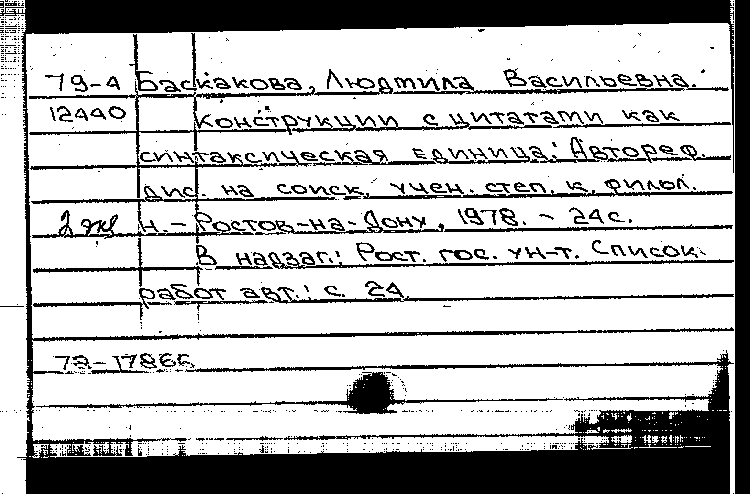 79-4 Баскакова, Людмила Васильевна.
12440 Конструкции с цитатами как
синтаксическая единица: Автореф.
дис. на соиск. учен. степ. к. филол.
2 экз н. - Ростов-на-Дону, 1978. - 24с.
В надзаг.: Рост. гос. ун-т. Список
работ авт.: с. 24.
78-17866